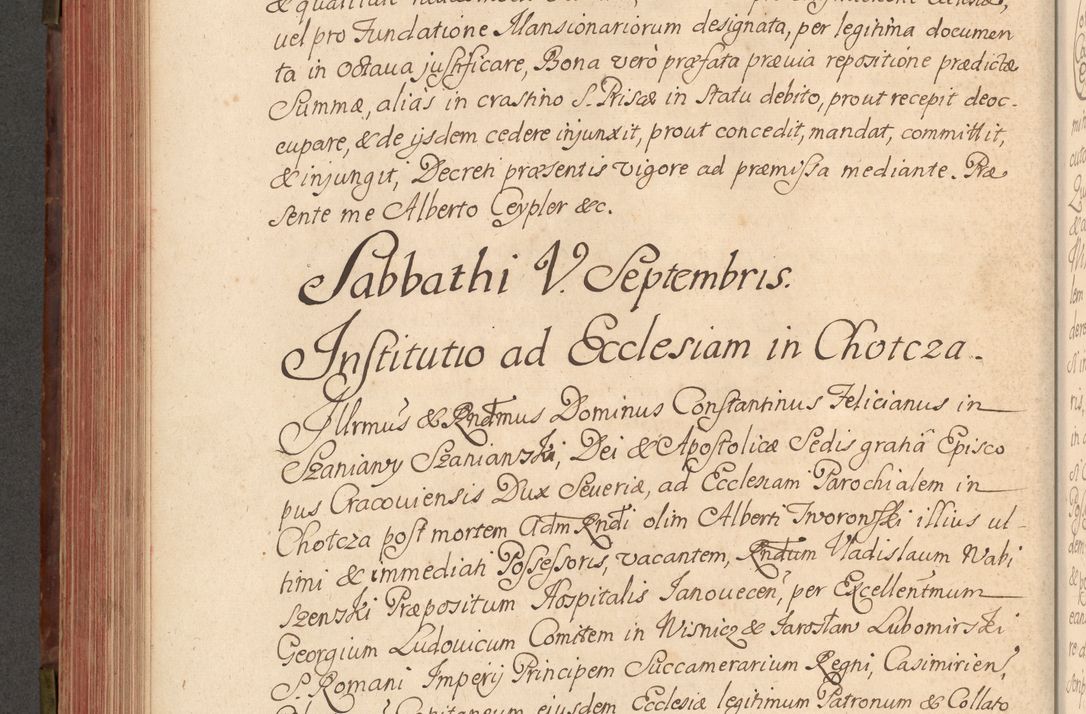 uel pro Fundatione Mansionariorum designata, per legitima documen
ta in octaua justificare, Bona verò præfata prævia repositione prædictæ
Summæ, aliàs in crastino S. Priscæ in statu debito, prout recepit deoc-
cupare, & de ijsdem cedere injunxit, prout concedit, mandat, committit,
& injungit, Decreti præsentis vigore ad præmissa mediante. Præ
sente me Alberto Ceypler &c.
Sabbathi V. Septembris.
Institutio ad Ecclesiam in Chotcza.
Illrmus & Rndmus Dominus Constantinus Felicianus in
Szaniawy Szaniawski, Dei & Apostolicæ Sedis gratiâ Episco
pus Cracoviensis Dux Severiæ, ad Ecclesiam Parochialem in
Chotcza post mortem Adm Rndi olim Alberti Tworowski illius ul-
timi & immediati Possessoris, vacantem, Rndum Vladislaum Wabi
szewski Præpositum Hospitalis Janovecen, per Excellentmum
Georgium Ludovicum Comitem in Wisnicz & Jaroslaw Lubomirski
S. Romani Imperij Principem Succamerarium Regni, Casimirien,
Capitaneum ejusdem Ecclesiæ legitimum Patronum & Collato